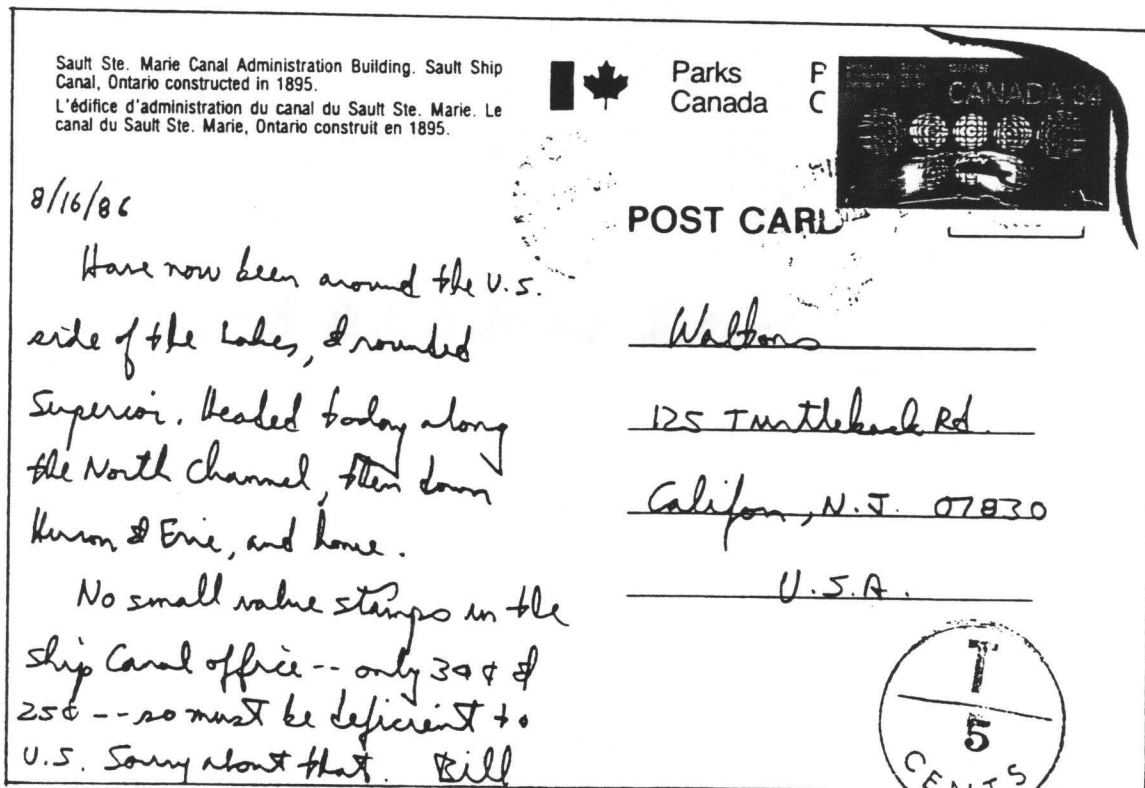 Sault Ste. Marie Canal Administration Building. Sault Ship
Canal, Ontario constructed in 1895.
L'édifice d'administration du canal du Sault Ste. Marie. Le
canal du Sault Ste. Marie, Ontario construit en 1895.
Parks
Canada
P
C
CANADA 34
POST CARD
8/16/86
Have now been around the U.S.
side of the Lakes, & rounded
Superior. Headed today along
the North Channel, then down
Huron & Erie, and home.
No small value stamps in the
Ship Canal office -- only 34¢ &
25¢ -- so must be deficient to
U.S. Sorry about that. Bill
Waltons
125 Turtleback Rd.
Califon, N.J. 07830
U.S.A.
T
5
CENTS